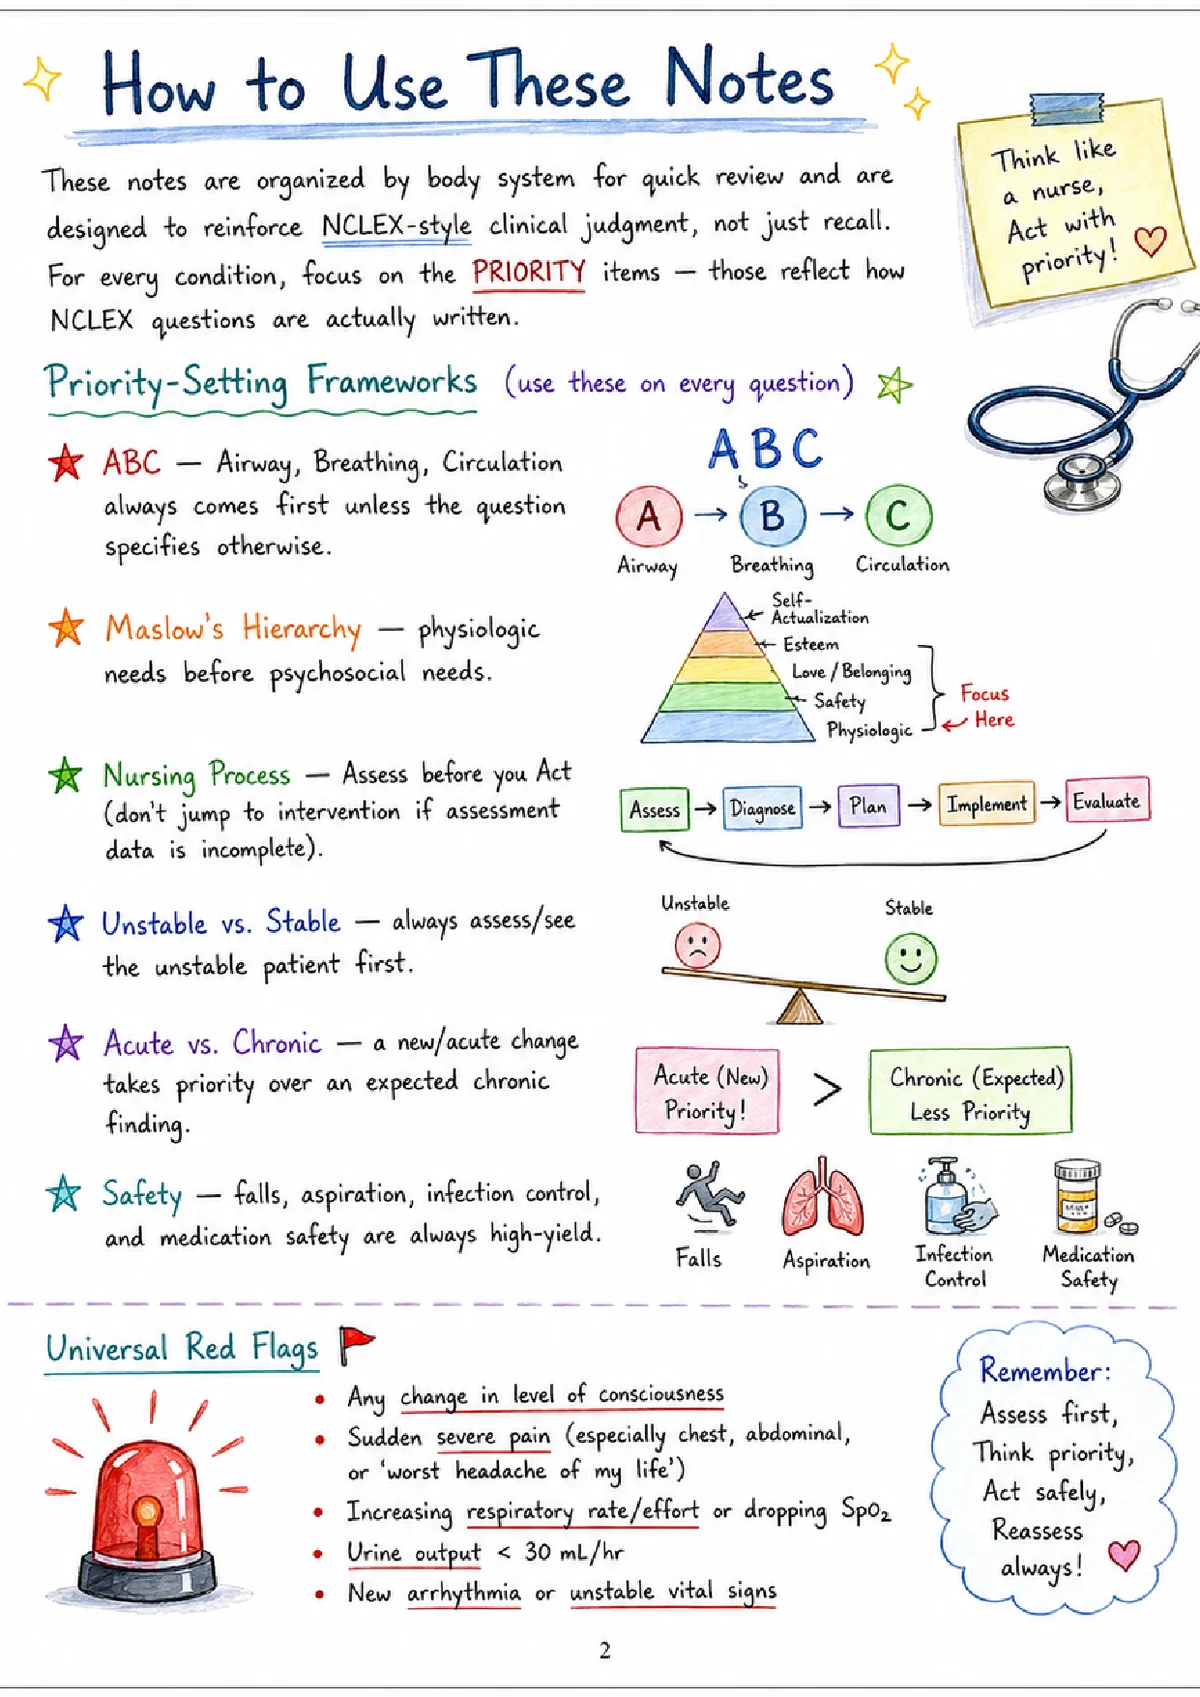 How to Use These Notes
These notes are organized by body system for quick review and are
designed to reinforce NCLEX-style clinical judgment, not just recall.
For every condition, focus on the PRIORITY items — those reflect how
NCLEX questions are actually written.
Think like
a nurse,
Act with
priority!
Priority-Setting Frameworks (use these on every question)
ABC — Airway, Breathing, Circulation
always comes first unless the question
specifies otherwise.
A B C
A B C
Airway Breathing Circulation
Maslow's Hierarchy — physiologic
needs before psychosocial needs.
Self-
Actualization
Esteem
Love / Belonging
Safety
Physiologic
Focus
Here
Nursing Process — Assess before you Act
(don't jump to intervention if assessment
data is incomplete).
Assess Diagnose Plan Implement Evaluate
Unstable vs. Stable — always assess/see
the unstable patient first.
Unstable Stable
Acute vs. Chronic — a new/acute change
takes priority over an expected chronic
finding.
Acute (New)
Priority!
>
Chronic (Expected)
Less Priority
Safety — falls, aspiration, infection control,
and medication safety are always high-yield.
Falls
Aspiration
Infection
Control
Medication
Safety
Universal Red Flags
• Any change in level of consciousness
• Sudden severe pain (especially chest, abdominal,
or 'worst headache of my life')
• Increasing respiratory rate/effort or dropping SpO₂
• Urine output < 30 mL/hr
• New arrhythmia or unstable vital signs
Remember:
Assess first,
Think priority,
Act safely,
Reassess
always!
2